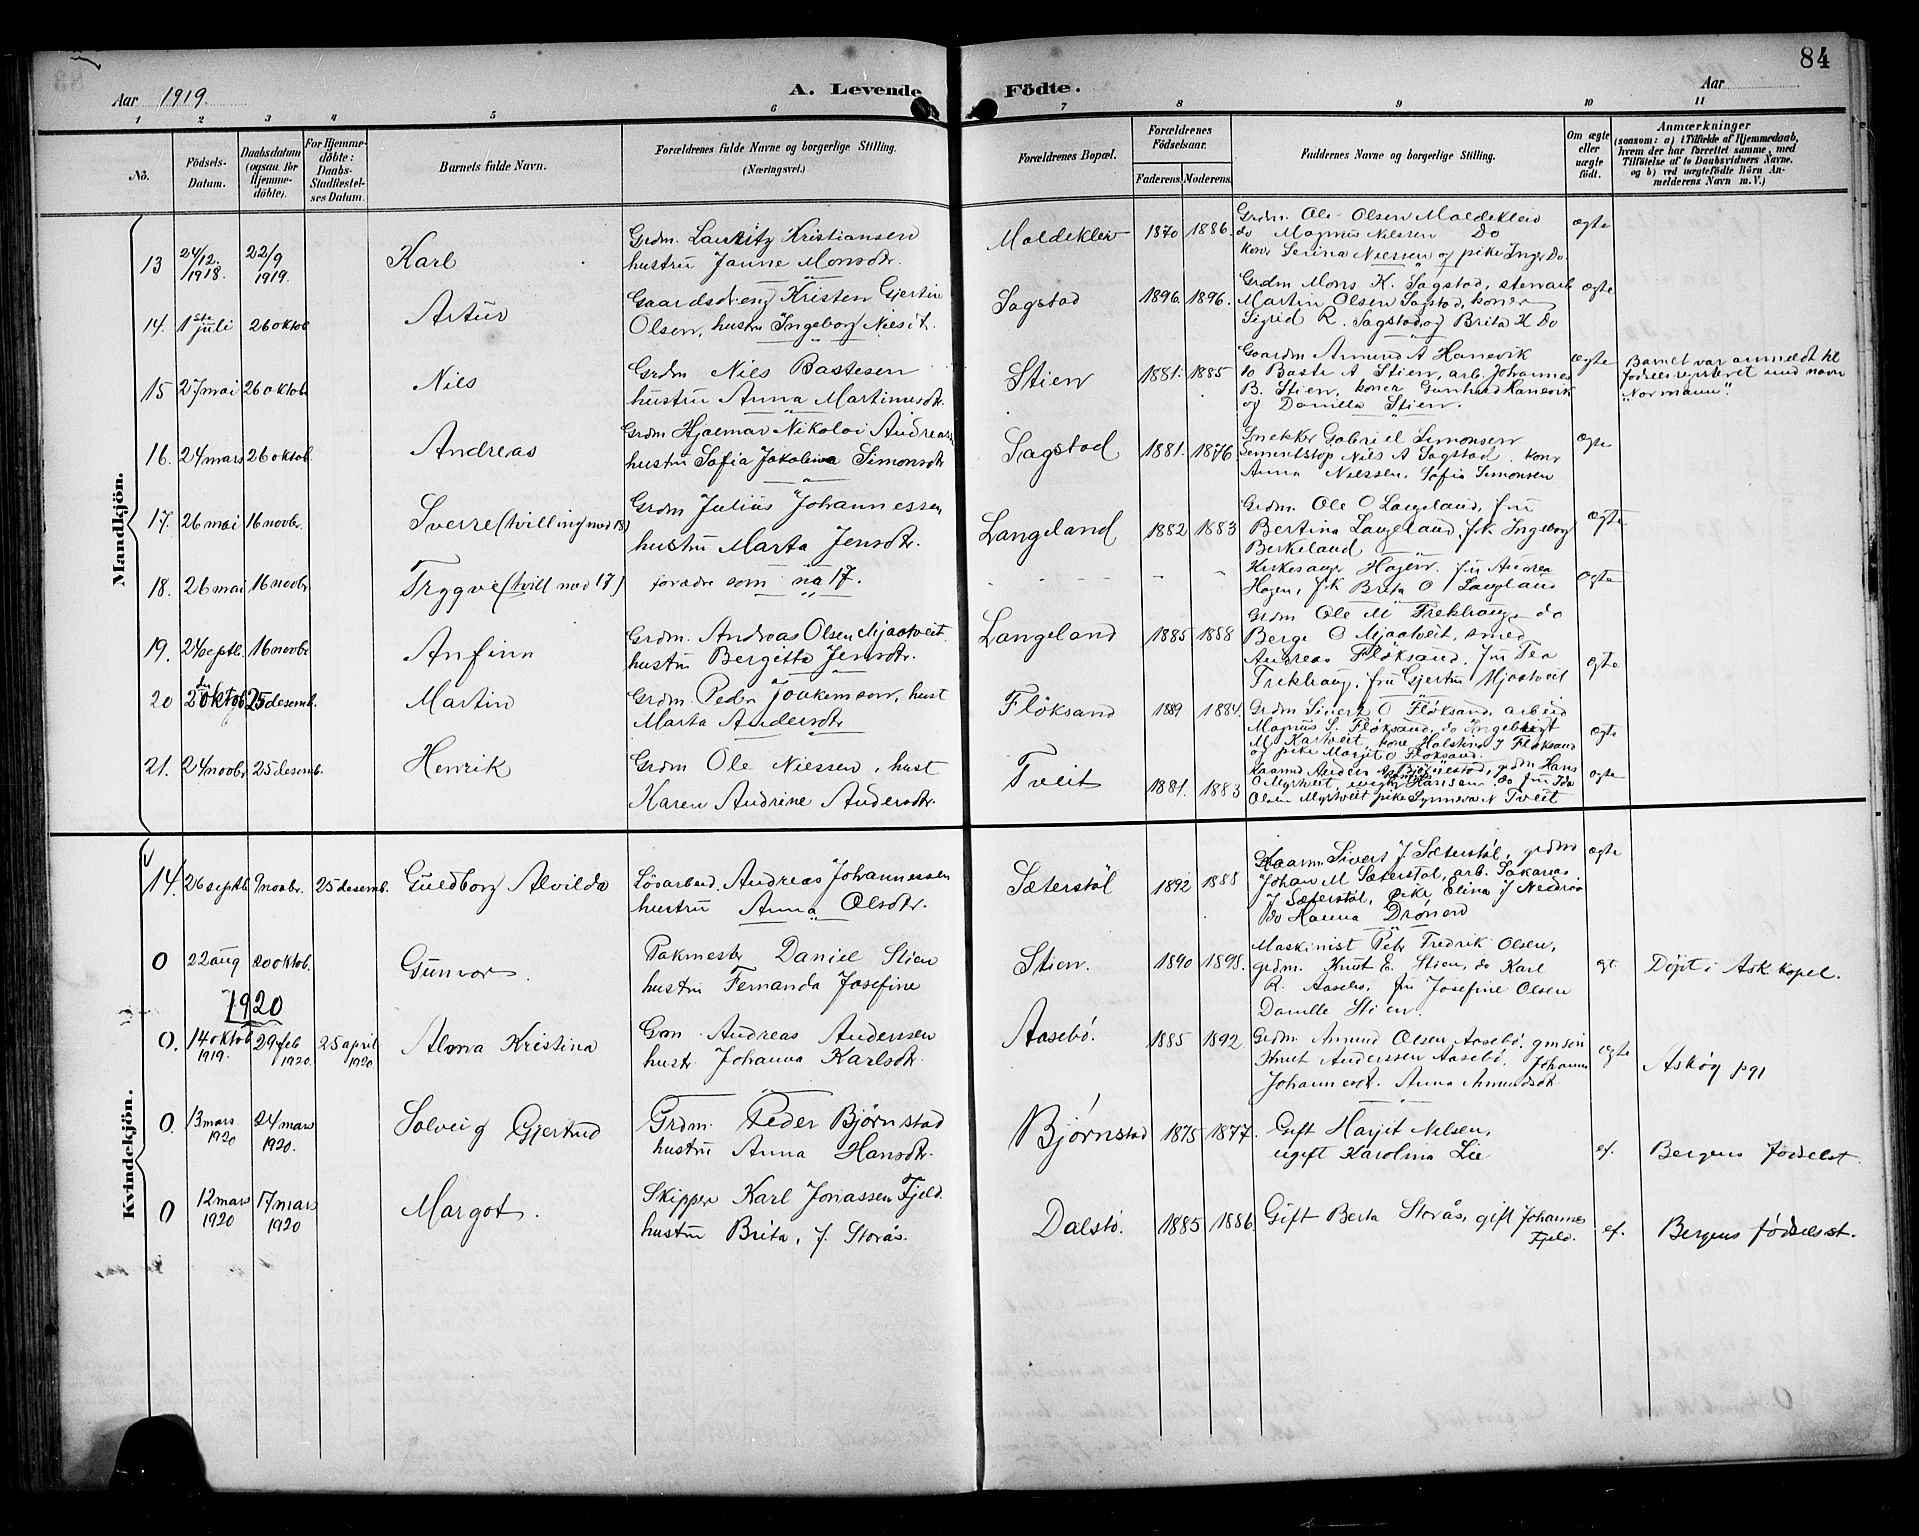 84
Aar 1919.
A. Levende Fødte.
Aar
1 2 3 4 5 6 7 8 9 10 11
No.
Fødsels-Datum.
Daabsdatum (ogsaa for Hjemmedøbte).
For Hjemmedøbte: Daabs-Stadfæstelses Datum.
Barnets fulde Navn.
Forældrenes fulde Navne og borgerlige Stilling.
(Næringsvei.)
Forældrenes Bopæl.
Forældrenes Fødselsaar.
Faderens. Moderens.
Faddernes Navne og borgerlige Stilling.
Om ægte eller uægte født.
Anmærkninger
(saasom: a) i Tilfælde af Hjemmedaab, hvem der har forrettet samme, med Tilføielse af to Daabsvidners Navne. og b) ved uægtefødte Børn Anmelderens Navn m. V.)
Mandkjön.
13 24/12. 1918. 22/9 1919. Karl
Grdm. Lauritz Kristiansen
hustru Janne Monsdtr.
Moldeklev 1870 1886.
Grdm. Ole Olsen Moldeklev
do Magnus Nilssen Do
koner Serina Nilssen og pike Inger Do.
ægte
14. 1ste juli 26 oktob Artur
Gaardsdreng Kristen Gjertin
Olsen, hustru Ingeborg Nilsdt.
Sagstad 1896. 1896.
Grdm Mons K. Sagstad, stenarb
Martin Olsen Sagstad, koner
Sigrid R. Sagstad og Brita K Do
ægte
15 27 mai 26 oktob Nils
Grdm Nils Bastesen
hustru Anna Martinusdtr.
Stien 1881. 1885
Gaardm Amund A Hanevik
do Baste A Stien, arb. Johannes
B. Stien, koner Gunhild Hanevik
og Danilla Stien.
ægte
Barnet var anmeldt til
fødselsregisteret med navn
"Normann".
16. 24 mars 26 oktob. Andreas
Grdm Hjalmar Nikolai Andreass
hustru Sofia Jakobina Simonsdtr
Sagstad 1881. 1876.
Snekker Gabriel Simonsen
sementstøp Nils A Sagstad. koner
Anna Nilssen, Sofia Simonsen
ægte
17. 26 mai 16 novbr. Sverre (tvilling med 18)
Grdm Julius Johannessen
hustru Marta Jensdtr.
Langeland 1882 1883
Grdm. Ole O Langeland, fru
Bertina Langeland, frk Ingeborg
Berkeland
ægte
18. 26 mai 16 novbr. Trygve (tvill med 17)
forældre som no 17.
Kirkesanger Hagen. fru Andrea
Hagen, frk Brita O Langeland
ægte
19. 24 septb. 16 novbr Anfinn
Grdm. Andreas Olsen Mjaatveit.
hustru Bergitta Jensdtr.
Langeland 1885 1888
Grdm Ole M Trekhaug do
Berge O Mjaatveit, smed
Andreas Fløksand, fru Tea
Trekhaug, fru Gjertru Mjaatveit
ægte
20 2den oktob. 25 desemb. Martin
Grdm Peder Joakimson, hust
Marta Andersdtr
Fløksand 1889 1884.
Grdm Sivert O Fløksand, arbeid
Magnus S. Fløksand, do Ingebrigt
M Kartveit, kone Halstina J Fløksand
og pike Marjit O Fløksand.
ægte
21. 24 novbr 25 desemb. Henrik
Grdm Ole Nilssen, hust
Karen Andrine Andersdtr.
Tveit 1881. 1883
Kaarmd Anders A Bjørnestad, grdm Hans
O Myrtveit, Hansen do fru Ida
Olsen Myrtveit pike Synneva N Tveit
ægte
Kvindekjön.
14. 26 septb 9 novbr. 25 desemb. Guldborg Alvilda
Løsarbeid. Andreas Johannessen
hustru Anna Olsdtr.
Sæterstøl 1892 1888
Kaarm. Sivert J Sæterstøl, grdm
Johan M Sæterstøl, arb. Sakarias
J Sæterstøl, pike Elina J
do Hanna Drønen
ægte
0 22 aug 20 oktob. Gunvor
Pakmester Daniel Stien
hustru Fernanda Josefine
Stien. 1890 1898.
Maskinist Petr Fredrik Olsen,
grdm. Knut E. Stien, do Karl
R. Aasebø, fru Josefine Olsen
Danille Stien.
egt.
Døpt i Ask kapel.
1920
0. 14 oktob. 1919. 29 feb 1920. 25 april 1920. Alma Kristina
Gm. Andreas Anderssen
hustr Johanna Karlsdtr.
Aasebø. 1885 1892.
Grdm. Amund Olsen Aasebø, gm søn
Knut Anderssen Aasebø. Johanna
Johannesdt. Anna Amundsdt
ægte
Askøy p 91
0. 13 mars 1920 24 mars 1920. Solveig Gjertrud
Grdm. Peder Bjørnstad
hustru Anna Hansdtr.
Bjørnstad 1875 1877.
Gift Marjit Nilsen,
ugift Karolina Lie
ef.
Bergens fødselsst.
0 12 mars 1920 17 mars 1920 Margot.
Skipper Karl Jonassen Fjeld.
hustru Brita, f. Storås.
Dalstø. 1885 1886.
Gift Berta Storås, gift Johannes
Fjeld.
ef.
Bergens fødselsst.